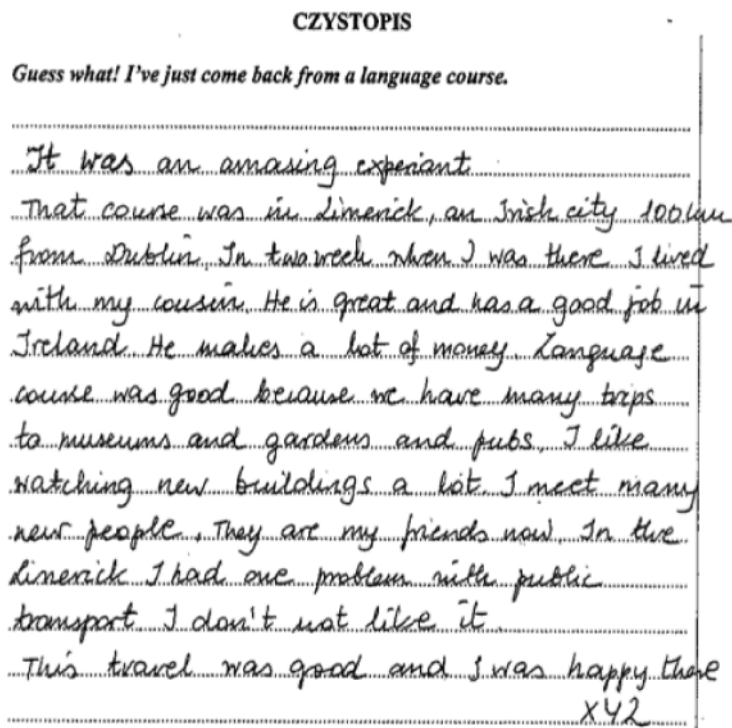 CZYSTOPIS
Guess what! I've just come back from a language course.
It was an amasing experiant
That course was in Limerick, an Irish city 100km
from Dublin. In twa week when I was there I lived
with my cousin. He is great and has a good job in
Ireland. He makes a lot of money. Language
course was good because we have many trips
to museums and gardens and pubs. I like
watching new buildings a lot. I meet many
new people. They are my friends now. In the
Limerick I had one problem with public
transport. I don't not like it.
This travel was good and I was happy there
XYZ